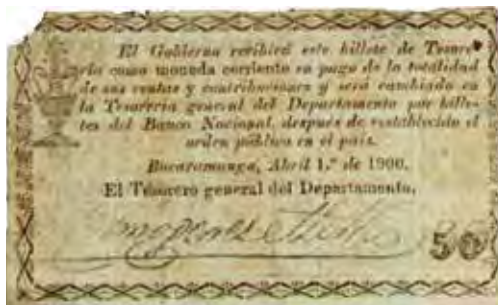 El Gobierno recibirá este billete de Tesore-
ría como moneda corriente en pago de la totalidad
de sus rentas y contribuciones y será cambiado en
la Tesorería general del Departamento por bille-
tes del Banco Nacional, después de restablecido el
orden público en el país.
Bucaramanga, Abril 1.º de 1900.
El Tesorero general del Departamento,
50